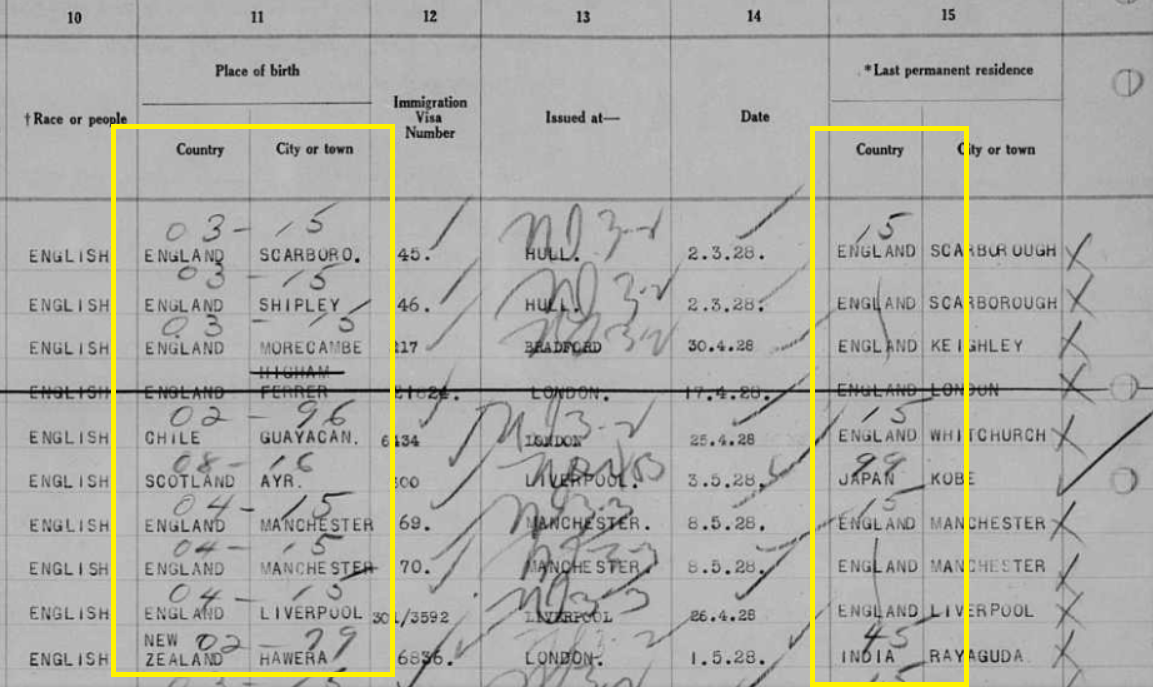 10 11 12 13 14 15
Place of birth *Last permanent residence
†Race or people Immigration Visa Number Issued at— Date
Country City or town Country City or town
03- 15 15
ENGLISH ENGLAND SCARBORO. 45. HULL. 2.3.28. ENGLAND SCARBOROUGH X
03 - 15
ENGLISH ENGLAND SHIPLEY 46. HULL. 2.3.28. ENGLAND SCARBOROUGH X
03 - 15
ENGLISH ENGLAND MORECAMBE 217 BRADFORD 30.4.28 ENGLAND KEIGHLEY X
HIGHAM
ENGLISH ENGLAND FERRER 21824. LONDON. 17.4.28. ENGLAND LONDON X
02 - 96 15
ENGLISH CHILE GUAYACAN. 6434 LONDON 25.4.28 ENGLAND WHITCHURCH X
08 - 16 99
ENGLISH SCOTLAND AYR. LIVERPOOL. 3.5.28. JAPAN KOBE
04 - 15 15
ENGLISH ENGLAND MANCHESTER 69. MANCHESTER. 8.5.28. ENGLAND MANCHESTER X
04 - 15
ENGLISH ENGLAND MANCHESTER 70. MANCHESTER. 8.5.28. ENGLAND MANCHESTER X
04 - 15
ENGLISH ENGLAND LIVERPOOL 301/3592 LIVERPOOL 26.4.28 ENGLAND LIVERPOOL X
NEW 02 - 79 45
ENGLISH ZEALAND HAWERA 6836. LONDON. 1.5.28. INDIA RAYAGUDA X